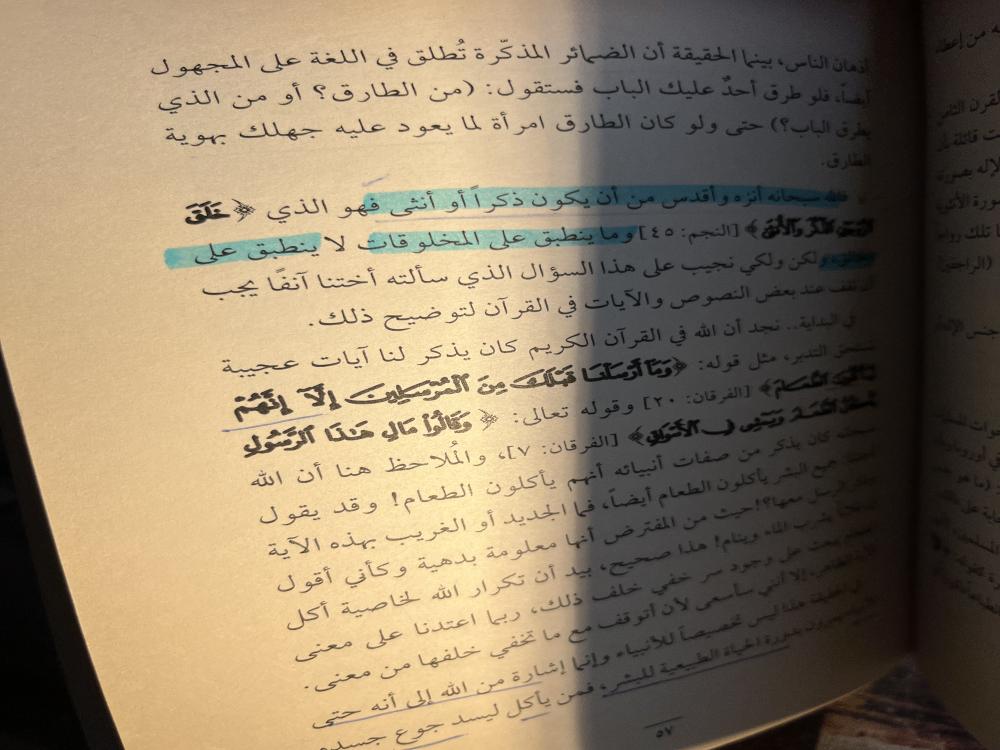 أذهان الناس، بينما الحقيقة أن الضمائر المذكّرة تُطلق في اللغة على المجهول
أيضاً، فلو طرق أحدٌ عليك الباب فستقول: (من الطارق؟ أو من الذي
يطرق الباب؟) حتى ولو كان الطارق امرأة لما يعود عليه جهلك بهوية
الطارق.
فالله سبحانه أنزه وأقدس من أن يكون ذكراً أو أنثى فهو الذي ﴿خَلَقَ
الزَّوْجَيْنِ الذَّكَرَ وَالْأُنثَىٰ﴾ [النجم: ٤٥] وما ينطبق على المخلوقات لا ينطبق على
خالقه، ولكن ولكي نجيب على هذا السؤال الذي سألته أختنا آنفًا يجب
أن نقف عند بعض النصوص والآيات في القرآن لتوضيح ذلك.
في البداية.. نجد أن الله في القرآن الكريم كان يذكر لنا آيات عجيبة
تستحق التدبر، مثل قوله: ﴿وَمَا أَرْسَلْنَا قَبْلَكَ مِنَ الْمُرْسَلِينَ إِلَّا إِنَّهُمْ
لَيَأْكُلُونَ الطَّعَامَ﴾ [الفرقان: ٢٠] وقوله تعالى: ﴿وَقَالُوا مَالِ هَٰذَا الرَّسُولِ
يَأْكُلُ الطَّعَامَ وَيَمْشِي فِي الْأَسْوَاقِ﴾ [الفرقان: ٧]، والمُلاحظ هنا أن الله
سبحانه كان يذكر من صفات أنبيائه أنهم يأكلون الطعام! وقد يقول
أحدنا: جميع البشر يأكلون الطعام أيضاً، فما الجديد أو الغريب بهذه الآية
الرسل معها؟! حيث من المفترض أنها معلومة بدهية وكأني أقول
يشرب الماء وينام! هذا صحيح، بيد أن تكرار الله لخاصية أكل
يبحث على وجود سر خفي خلف ذلك، ربما اعتدنا على معنى
إلا أنني سأسعى لأن أتوقف مع ما تخفي خلفها من معنى.
هذا ليس تخصيصاً للأنبياء وإنما إشارة من الله إلى أنه حتى
بضرورة الحياة الطبيعية للبشر، فمن يأكل ليسد جوع جسده
٥٧